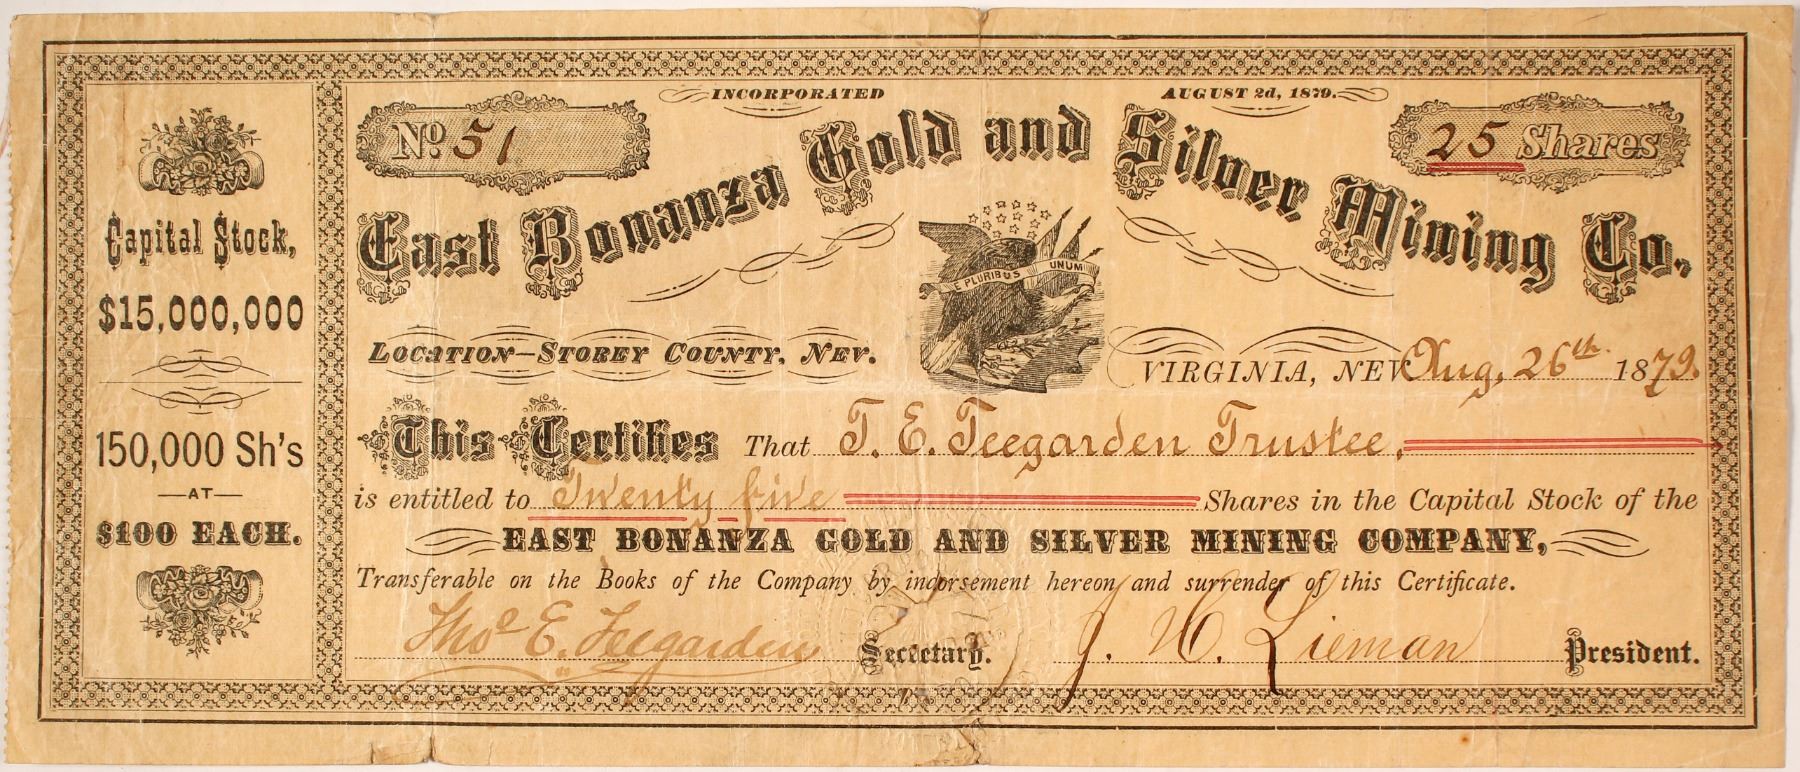 INCORPORATED AUGUST 2d, 1879.
No. 51
25 Shares
East Bonanza Gold and Silver Mining Co.
E PLURIBUS UNUM
Capital Stock,
$15,000,000
150,000 Sh's
—AT—
$100 EACH.
LOCATION—STOREY COUNTY, NEV.
VIRGINIA, NEV Aug. 26th 1879.
This Certifies That T. E. Teegarden Trustee,
is entitled to Twenty five Shares in the Capital Stock of the
EAST BONANZA GOLD AND SILVER MINING COMPANY,
Transferable on the Books of the Company by indorsement hereon and surrender of this Certificate.
Thos E. Teegarden Secretary.
J. H. Lieman President.